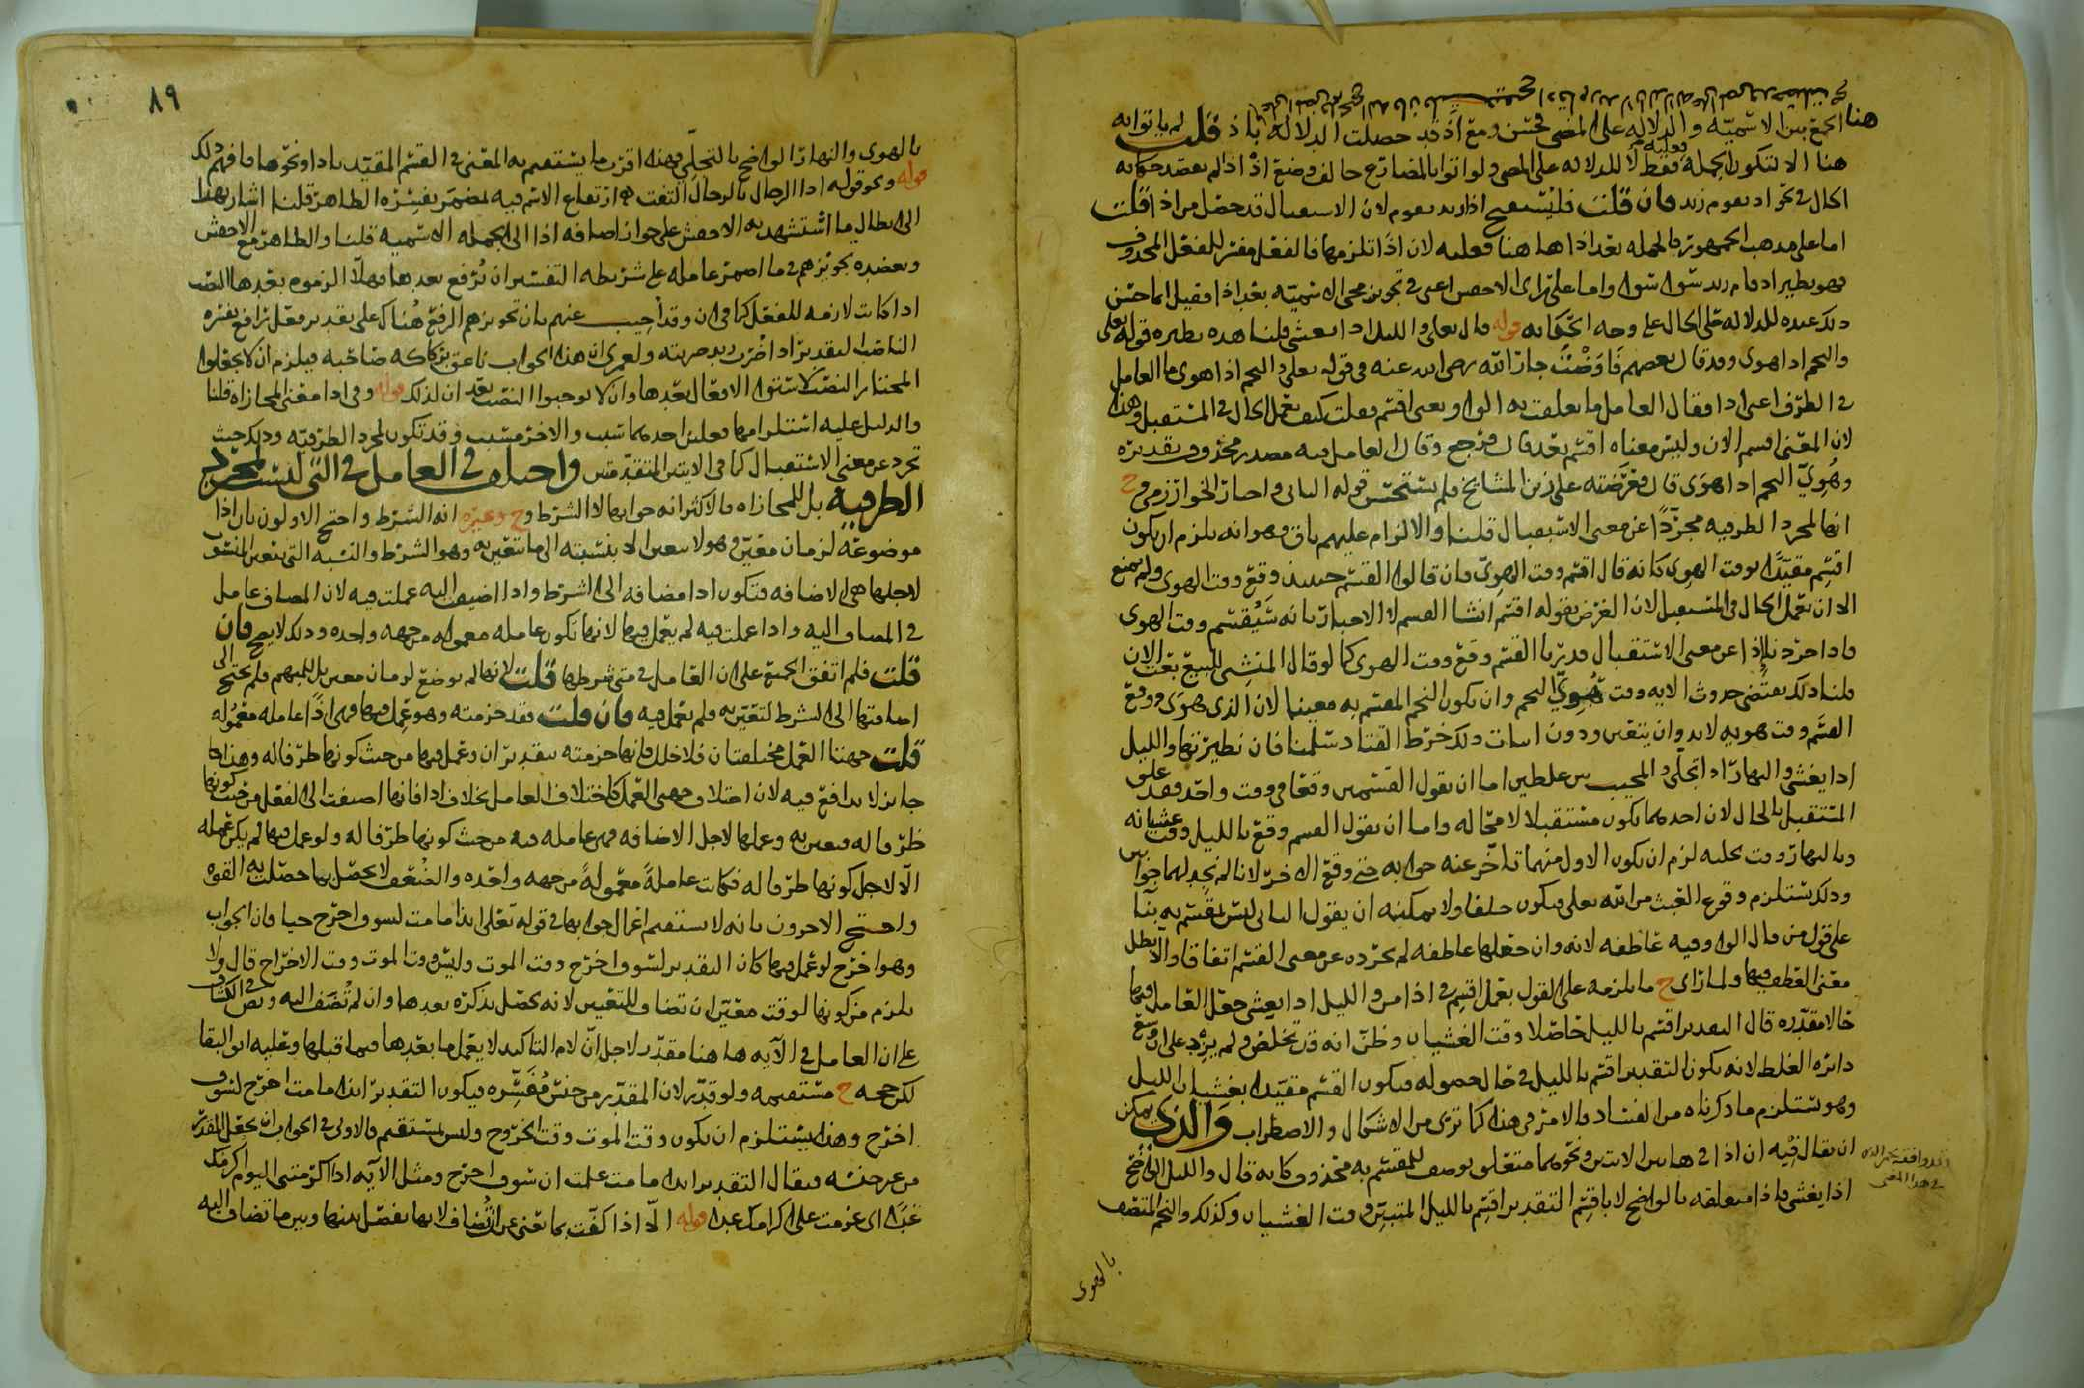 هنا الجمع بين الاسميه والدلاله على المضي فحسن ومع اذ قد حصلت الدلاله باذ قلت لم ياتوا به
هنا الا لتكون الجمله فعليه فقط لا للدلاله على المضي ولو اتوا بالمضارع خالف وضع اذ اذ لم يقصد حكايه
الحال في نحو اذ يقوم زيد فان قلت فليقبح اذا زيد يقوم لان الاستقبال قد حصل من اذا قلت
اما على مذهب الجمهور فالجمله بعد اذا هاهنا فعليه لان اذا تلزمها فالفعل مفسر للفعل المحذوف
فهو نظير اذ قام زيد سواء سواء واما على راي الاخفش اعني في تجويز مجي الاسميه بعد اذا فقيل انما حسن
ذلك عنده للدلاله على الحال على وجه الحكايه قوله قال تعالى والليل اذا يغشى قلنا هذه نظيره قوله تعالى
والنجم اذا هوى وقد قال بعضهم فاوضت جار الله رضي الله عنه في قوله تعالى والنجم اذا هوى ما العامل
في الظرف اعني اذا فقال العامل ما تعلقت به الواو يعني اقسم فقلت كيف تعمل الحال في المستقبل وهذا
لان المعنى اقسم الان وليس معناه اقسم بعد قال فرجع وقال العامل فيه مصدر محذوف تقديره
وهوي النجم اذا هوى قال فعرضته على زين المشايخ فلم يستحسن قوله الثاني واختار الخوارزمي وح
انها لمجرد الظرفيه مجردا عن معنى الاستقبال قلنا والالزام عليهم باق وهو انه يلزم ان يكون
اقسم مقيدا بوقت الهوي كانه قال اقسم وقت الهوي فان قالوا القسم حينئذ وقع وقت الهوى ولم يمنع
الا ان تعمل الحال في المستقبل لان الغرض بقوله اقسم انشا القسم لا الاخبار بانه سيقسم وقت الهوى
فاذا جرد نا اذا عن معنى الاستقبال قدرنا القسم وقع وقت الهوى كما لو قال المنشي للبيع بعت الان
قلنا ذلك يقتضي حدوث الايه وقت هوي النجم وان يكون النجم المقسم به معينا لان الذي هوى ووقع
القسم وقت هويه لا بد وان يتعين ودون اثبات ذلك خرط القتاد سلمنا فان نظيرتها والليل
اذا يغشى والنهار اذا تجلى والمجيب بين غلطين اما ان يقول القسمين وقعا في وقت واحد فقد علق
المستقبل بالحال لان احدهما يكون مستقبلا لا محاله واما ان يقول القسم وقع بالليل وقت غشيانه
وبالنهار وقت تجليه لزم ان يكون الاول منهما تاخر عنه جوابه حتى وقع الاخر لانا لم نجد لهما جوابين
وذلك يستلزم وقوع العبث من الله تعالى فيكون حلفا ولا يمكنه ان يقول الثاني ليس بقسم به بنا
على قول من قال الواو فيه عاطفه لانه وان جعلها عاطفه لم تجرده عن معنى القسم اتفاقا والا بطل
معنى العطف فيها ولما راى ح ما يلزمه على القول بعمل اقسم في اذا من والليل اذا يغشى جعل العامل فيها
حالا مقدره قال التقدير اقسم بالليل حاصلا وقت الغشيان وظن انه قد تخلص ولم يزد على ان وسع
دائره الغلط لانه يكون التقدير اقسم بالليل في حال حصوله فيكون القسم مقيدا بغشيان الليل
وهو يستلزم ما ذكرناه من الفساد فالامر في هذا كما ترى من الاشكال والاضطراب والذي يمكن
ان يقال فيه ان اذا في هاتين الايتين ونحوهما متعلق بوصف للمقسم به محذوف كانه قال والليل الواضح
اذا يغشى فاذا متعلقه بالواضح لا باقسم التقدير اقسم بالليل المتبين وقت الغشيان وكذلك والنجم المتصف
بالهوى
٨٩
بالهوى والنهار الواضح بالتجلي فهذا اقرب ما يستقيم به المعنى في القسم المقيد باذا ونحوها فافهم ذلك
قوله ونحو قوله اذا الرجال بالرجال التفت هو ارتفاع الاسم فيه بمضمر يفسره الظاهر قلنا اشار بهذا
الى ابطال ما استشهد به الاخفش على جواز اضافه اذا الى الجمله الاسميه قلنا والظاهر مع الاخفش
ويعضده تجويزهم في ما اضمر عامله على شريطه التفسير ان يرفع بعدها فهلا الزموه بعدها النصب
اذا كانت لازمه للفعل كما في ان وقد اجيب عنهم بان تجويزهم الرفع هناك على تقدير فعل رافع يفسره
الناصب التقدير اذا ضرب زيد ضربته ولعمري ان هذا الجواب ناعق بركاكه صاحبه فيلزم ان لا يجعلوا
المختار النصب لاستواء الافعال بعدها وان لا يوجبوا النصب بعد ان لذلك قوله وفي اذا معنى المجازاه قلنا
والدليل عليه استلزامها فعلين احدهما سبب والاخر مسبب وقد تكون لمجرد الظرفيه وذلك حيث
تجرد عن معنى الاستقبال كما في الايتين المتقدمتين واختلف في العامل في التي ليست لمجرد
الظرفيه بل للمجازاه فالاكثر انه جوابها لا الشرط وح وغيره انه الشرط واحتج الاولون بان اذا
موضوعه لزمان معين وهو لا يتعين الا بنسبته الى ما يتعين به وهو الشرط والنسبه التي يتعين المنسوب
لاجلها هي الاضافه فتكون اذا مضافه الى الشرط واذا اضيف اليه عملت فيه لان المضاف عامل
في المضاف اليه واذا عملت فيه لم يعمل فيها لانها تكون عامله معموله من جهه واحده وذلك لا يصح فان
قلت فلم اتفق الجميع على ان العامل في متى شرطها قلت لانها لم توضع لزمان معين بل لمبهم فلم تحتج الى
اضافتها الى الشرط لتتعين به فلم تعمل فيه فان قلت فقد جزمته وهو عمل فيها فهي اذا عامله معموله
قلت جهتا العمل مختلفتان فلا خلل فانها جزمته بتقدير ان وعمل فيها من حيث كونها ظرفا له وهذا
جايز لا تدافع فيه لان اختلاف جهتي العمل كاختلاف العامل بخلاف اذا فانها اضيفت الى الفعل من حيث كونها
ظرفا له فتعين به وعملها لاجل الاضافه فهي عامله فيه من حيث كونها ظرفا له ولو عمل فيها لم يكن عمله
الا لاجل كونها ظرفا له فكانت عاملة معمولة من جهه واحده والضعف لا يحصل بها حصلت به القوه
واحتج الاخرون بانه لا يستقيم اعمال جوابها في قوله تعالى ائذا ما مت لسوف اخرج حيا فان الجواب
وهو اخرج لو عمل فيها كان التقدير لسوف اخرج وقت الموت وليس وقت الموت وقت الاخراج قال ولا
يلزم من كونها لوقت معين ان تضاف للتعيين لانه يحصل بذكره بعدها وان لم تضف اليه ونص في الكشاف
على ان العامل في الايه هاهنا مقدر لاجل ان لام التاكيد لا يعمل ما بعدها فيما قبلها وعليه ابو البقا
لكن حجه ح مستقيمه ولو قدر لان المقدر من جنس مفسره فيكون التقدير ائذا ما مت اخرج لسوف
اخرج وهذا يستلزم ان يكون وقت الموت وقت الخروج وليس بمستقيم فالاولى في الجواب ان يجعل المقدر
من غير جنسه فيقال التقدير ائذا ما مت علمت ان سوف اخرج ومثل الايه اذا اكرمتني اليوم اكرمتك
غدا اي عزمت على اكرامك غدا قوله الا اذا كفت بما تعني عن ان تضاف لانها تفصل بينها وبين ما تضاف اليه